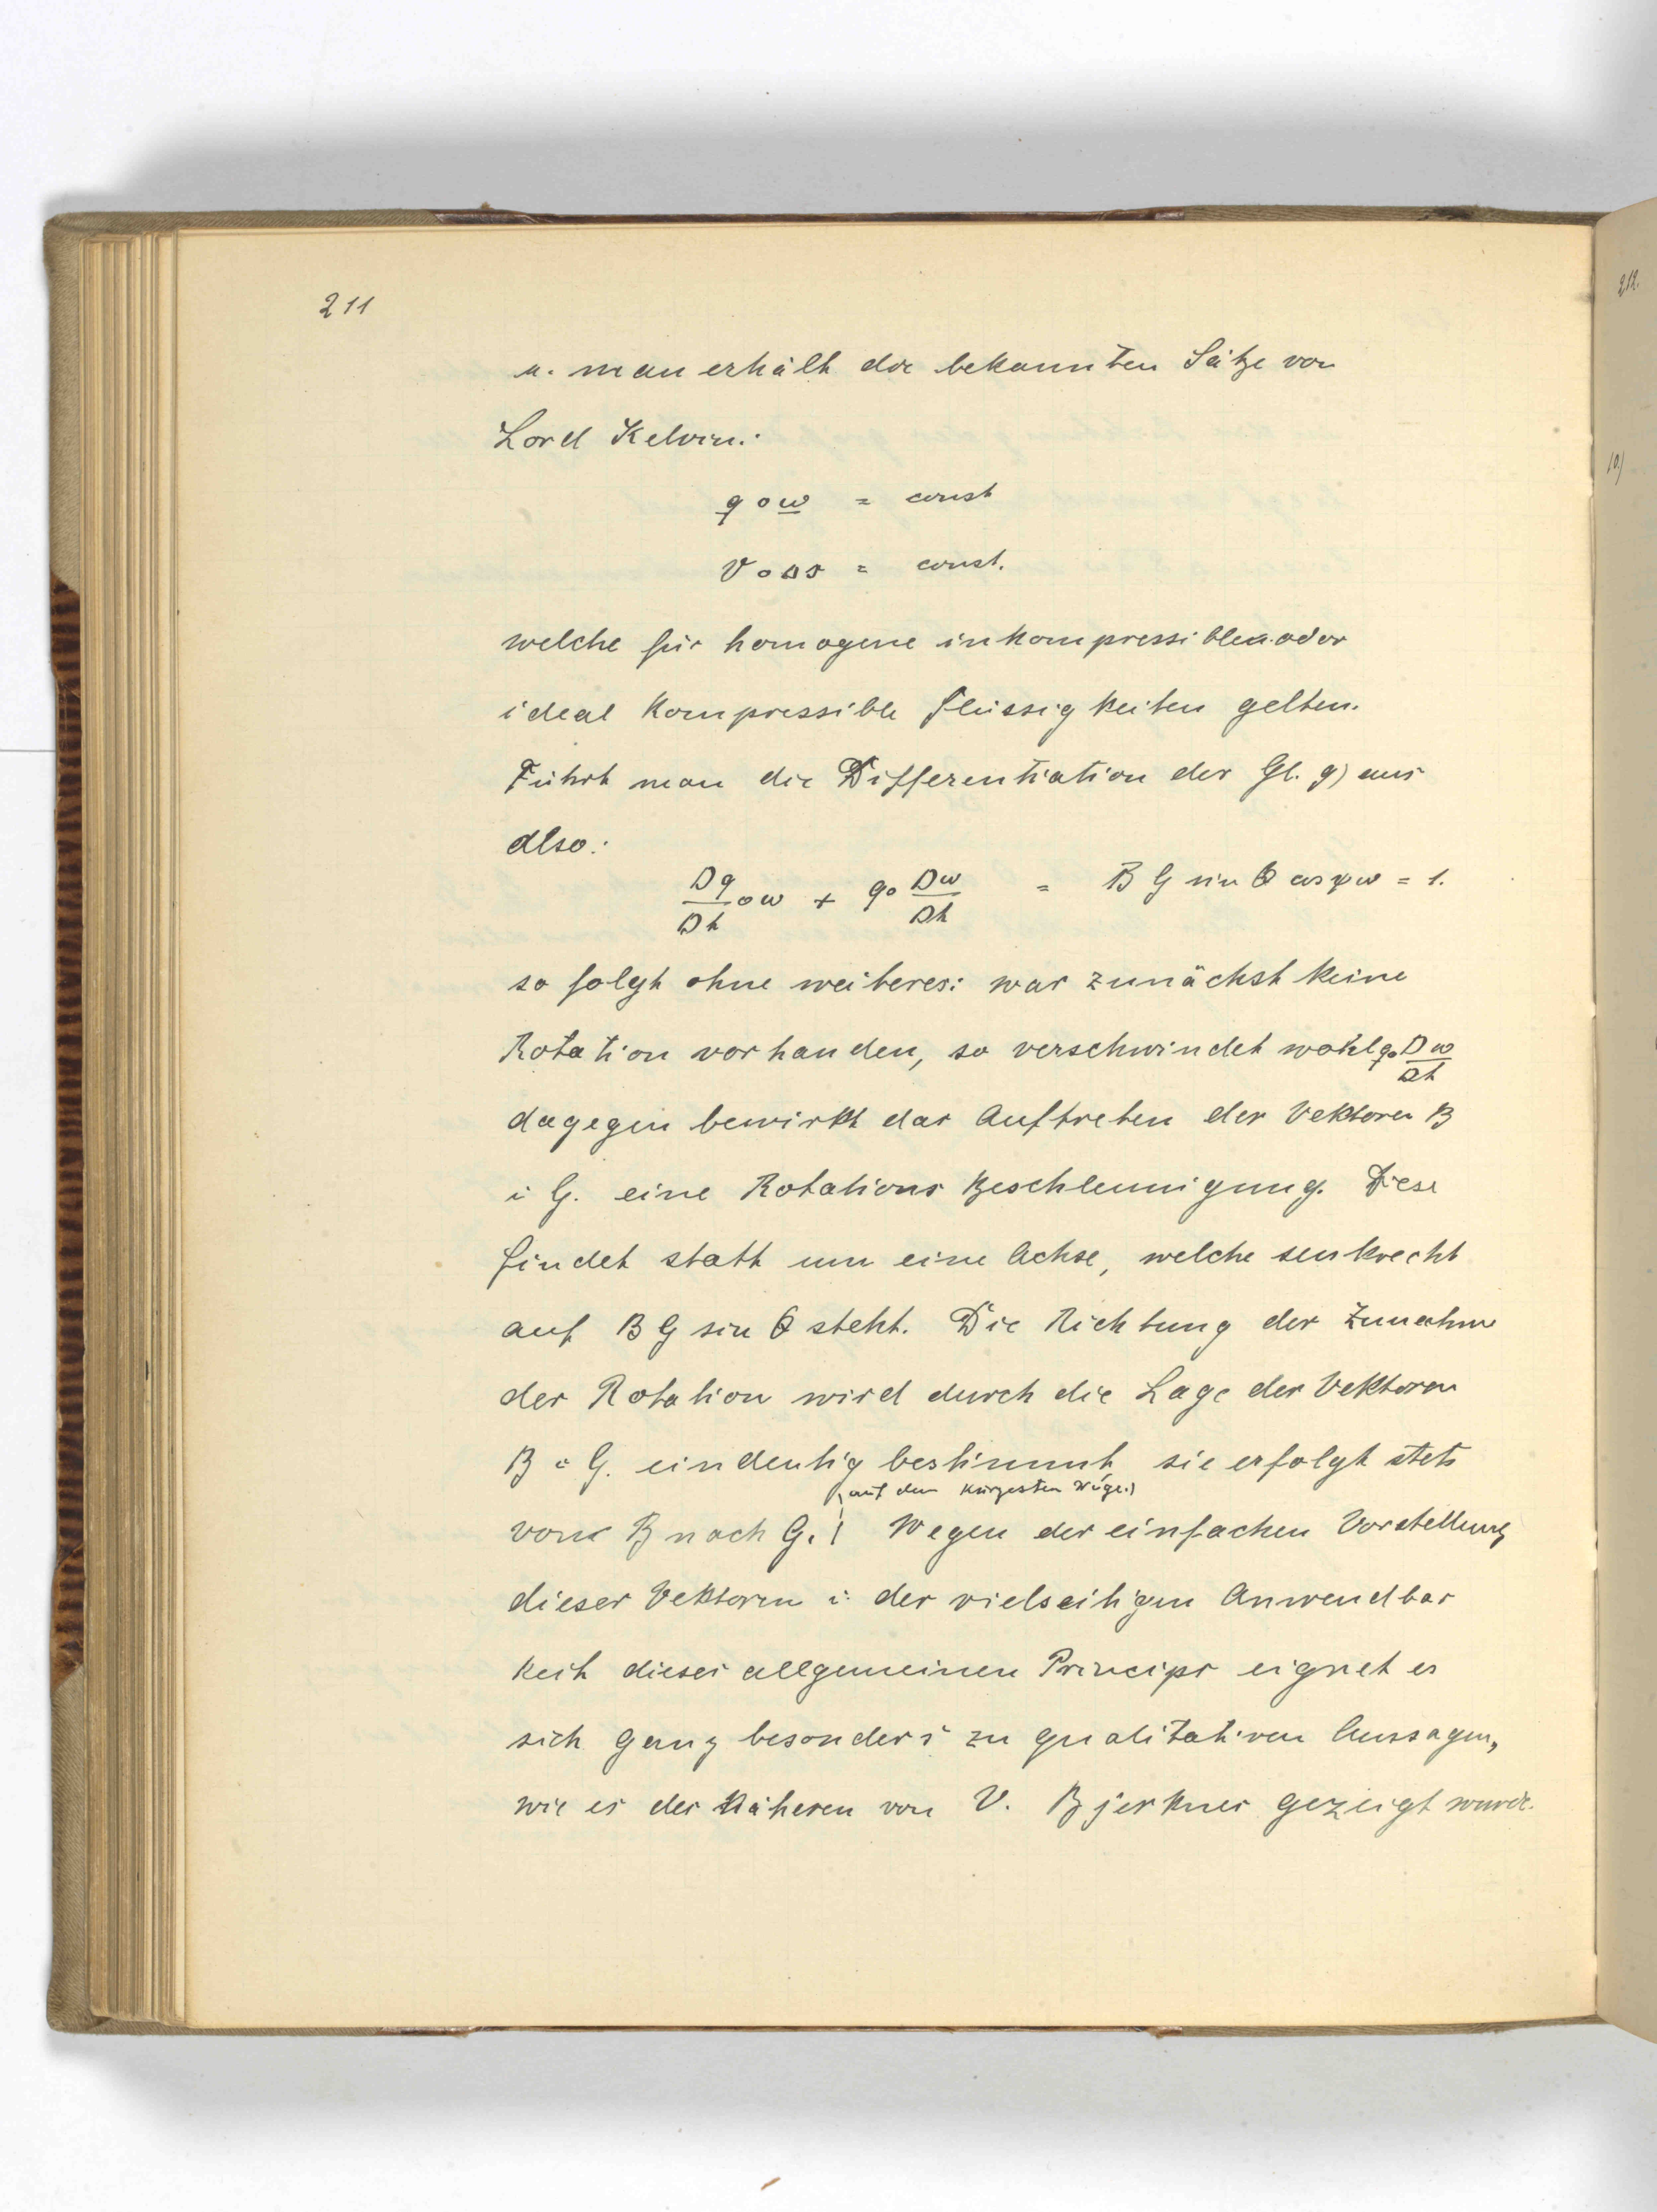 211
u. man erhält die bekannten Sätze von
Lord Kelvin:
q o ω = const
V o Δs = const.
welche für homogene inkompressiblen oder
ideal kompressible Flüssigkeiten gelten.
Führt man die Differentiation der Gl. 9) aus
also:
Dq/Dt o ω + q o Dω/Dt = B G sin θ cos ψ ω = 1.
so folgt ohne weiteres: war zunächst keine
Rotation vorhanden, so verschwindet wohl q o Dω/Dt
dagegen bewirkt das Auftreten der Vektoren B
i G. eine Rotations Beschleunigung. Diese
findet statt um eine Achse, welche senkrecht
auf B G sin θ steht. Die Richtung der Zunahme
der Rotation wird durch die Lage der Vektoren
B i G. eindeutig bestimmt, sie erfolgt stets
(auf dem kürzesten Wege.)
von B nach G. Wegen der einfachen Vorstellung
dieser Vektoren i der vielseitigen Anwendbar
keit dieses allgemeinen Princips eignet es
sich ganz besonders zu qualitativen Aussagen,
wie es des Näheren von V. Bjerknes gezeigt wurde.
212.
10)